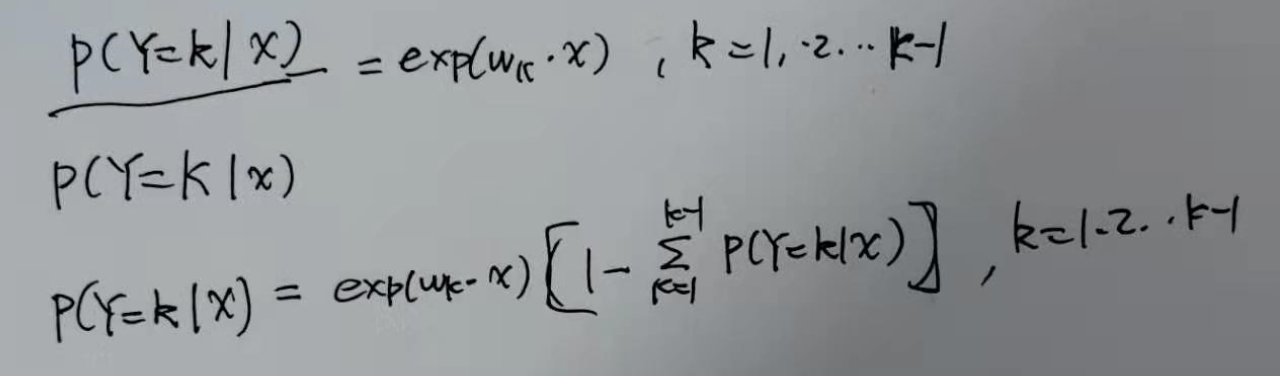 P(Y=k|x) / P(Y=K|x) = exp(w_k·x), k=1,·2···K-1
P(Y=k|x) = exp(w_k·x)[1-∑_{k=1}^{k-1} P(Y=k|x)], k=1·2··K-1